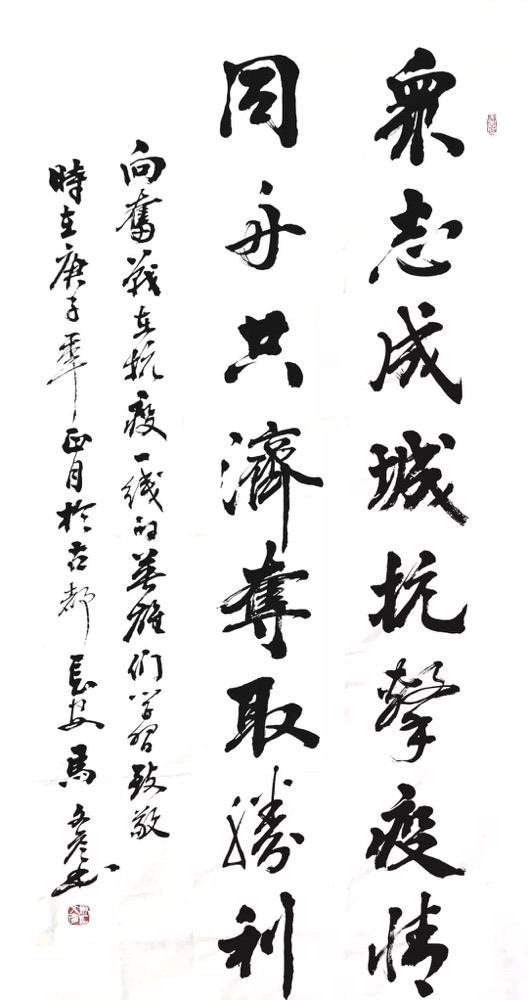 眾志成城抗擊疫情
同舟共濟奪取勝利
向奮戰在抗疫一綫的英雄們學習致敬
時在庚子年正月於古都長安馬文彦书